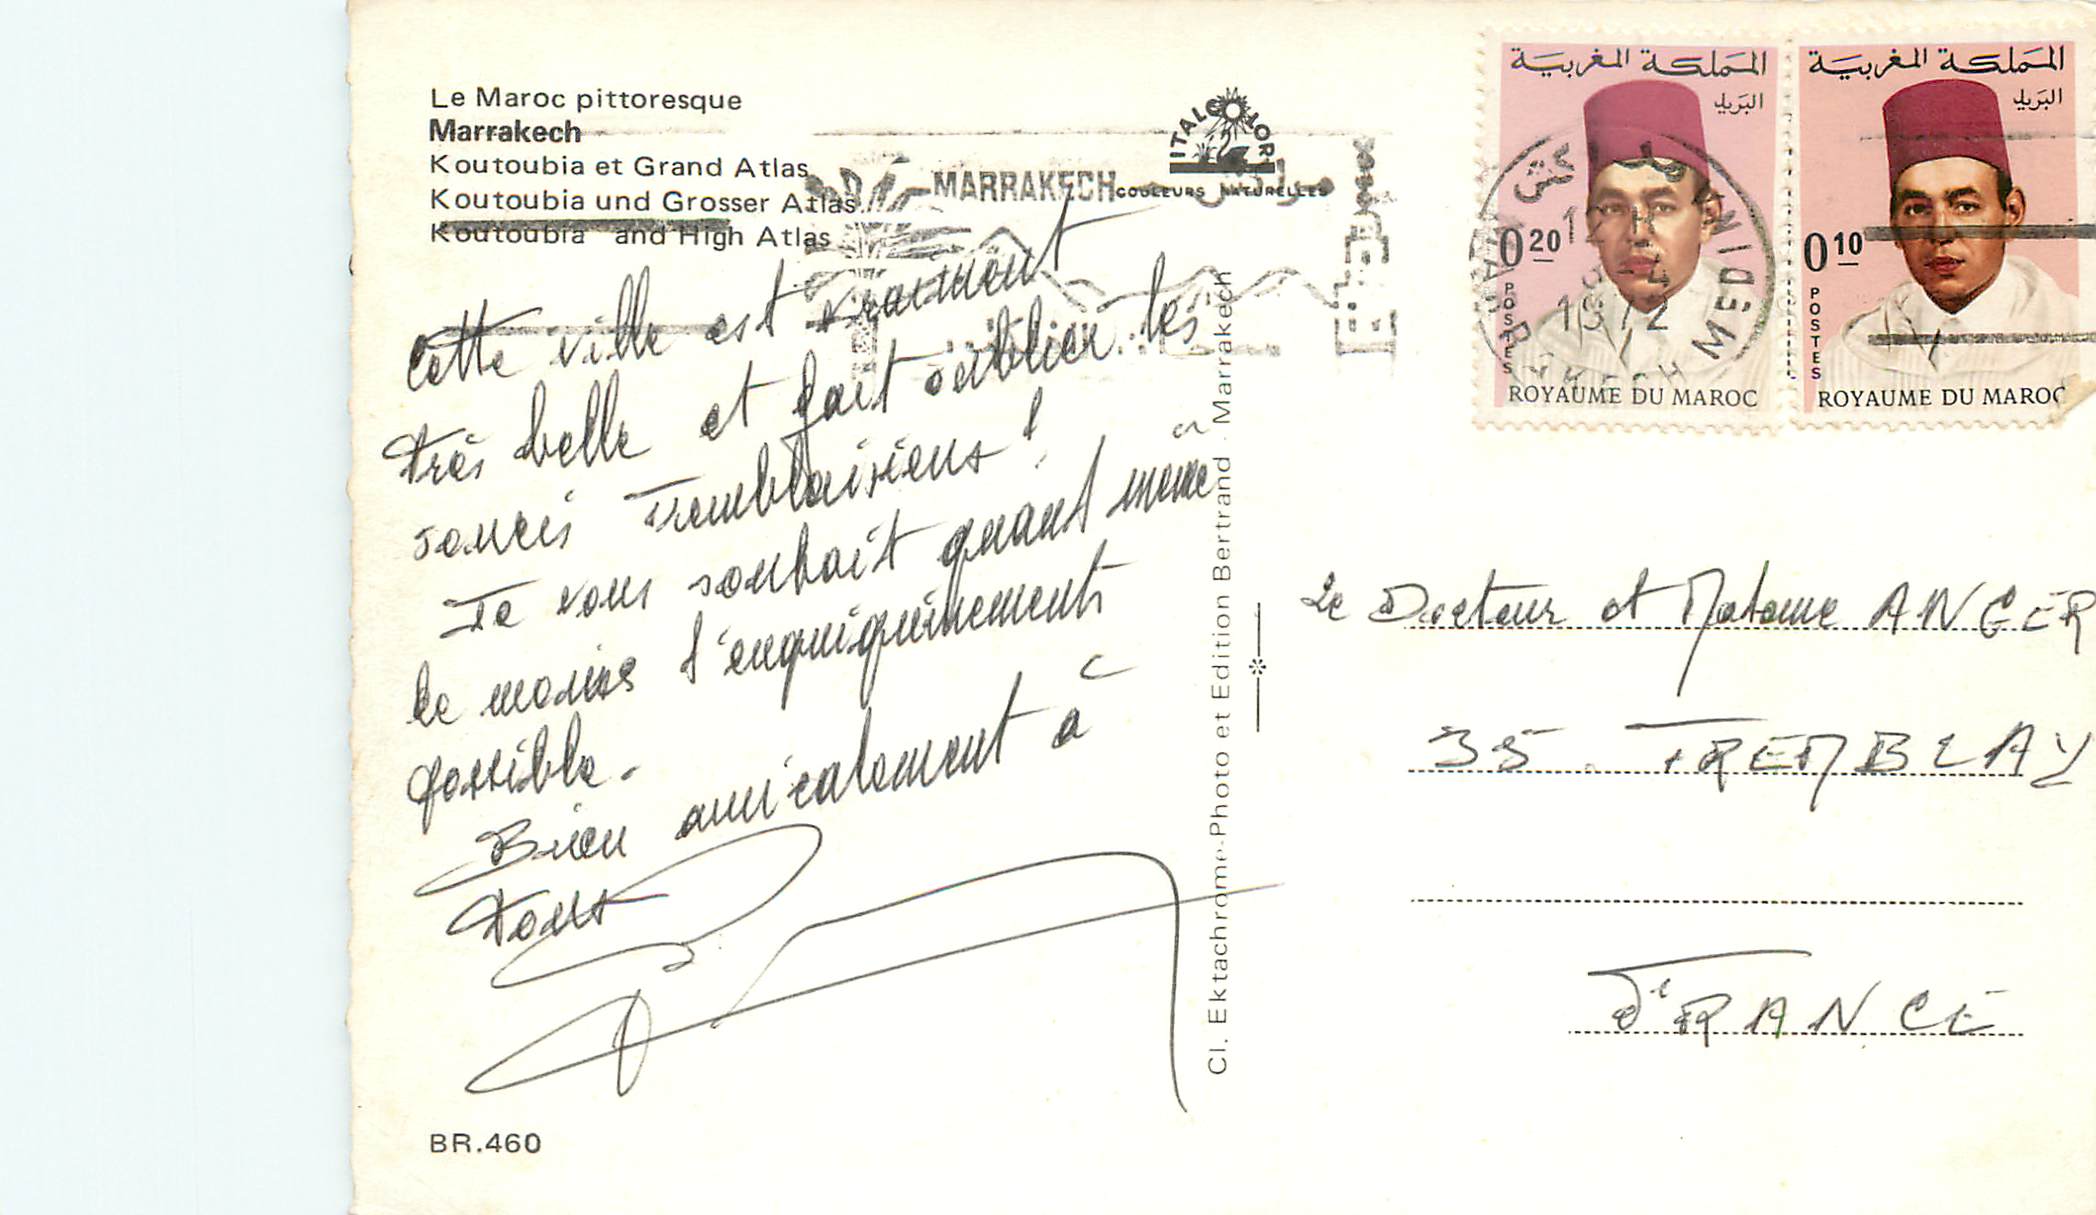 Le Maroc pittoresque
Marrakech
Koutoubia et Grand Atlas
Koutoubia und Grosser Atlas
Koutoubia and High Atlas
MARRAKECH
ITALCOLOR
COULEURS NATURELLES
Cette ville est vraiment
très belle et fait oublier les
soucis Tremblaisiens !
Je vous souhait quant même
le moins d'enquiquinements
possible.
Bien amicalement à
tous
BR.460
Cl. Ektachrome-Photo et Edition Bertrand - Marrakech
المملكة المغربية
البريد
0 20
POSTES
ROYAUME DU MAROC
المملكة المغربية
البريد
0 10
POSTES
ROYAUME DU MAROC
MEDINA
1972
Le Docteur et Madame ANGER
35. TREMBLAY
FRANCE